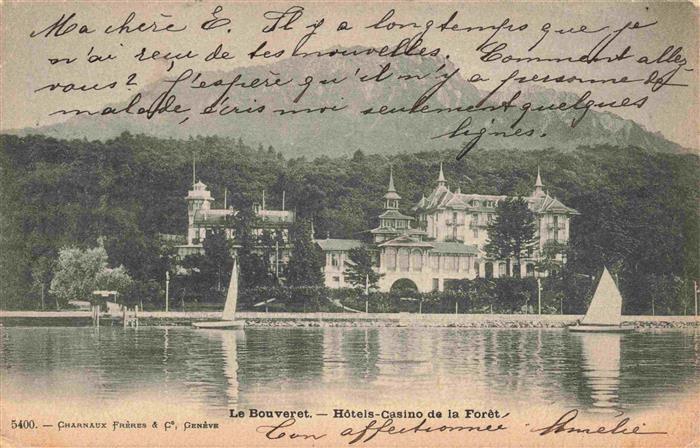 Ma chère E. Il y a longtemps que je
n'ai reçu de tes nouvelles. Comment allez
vous? J'espère qu'il n'y a personne de
malade, écris moi seulement quelques
lignes.
Le Bouveret. — Hôtels-Casino de la Forêt
5400. — Charnaux Frères & Cº, Genève
Ton affectionnée Amélie